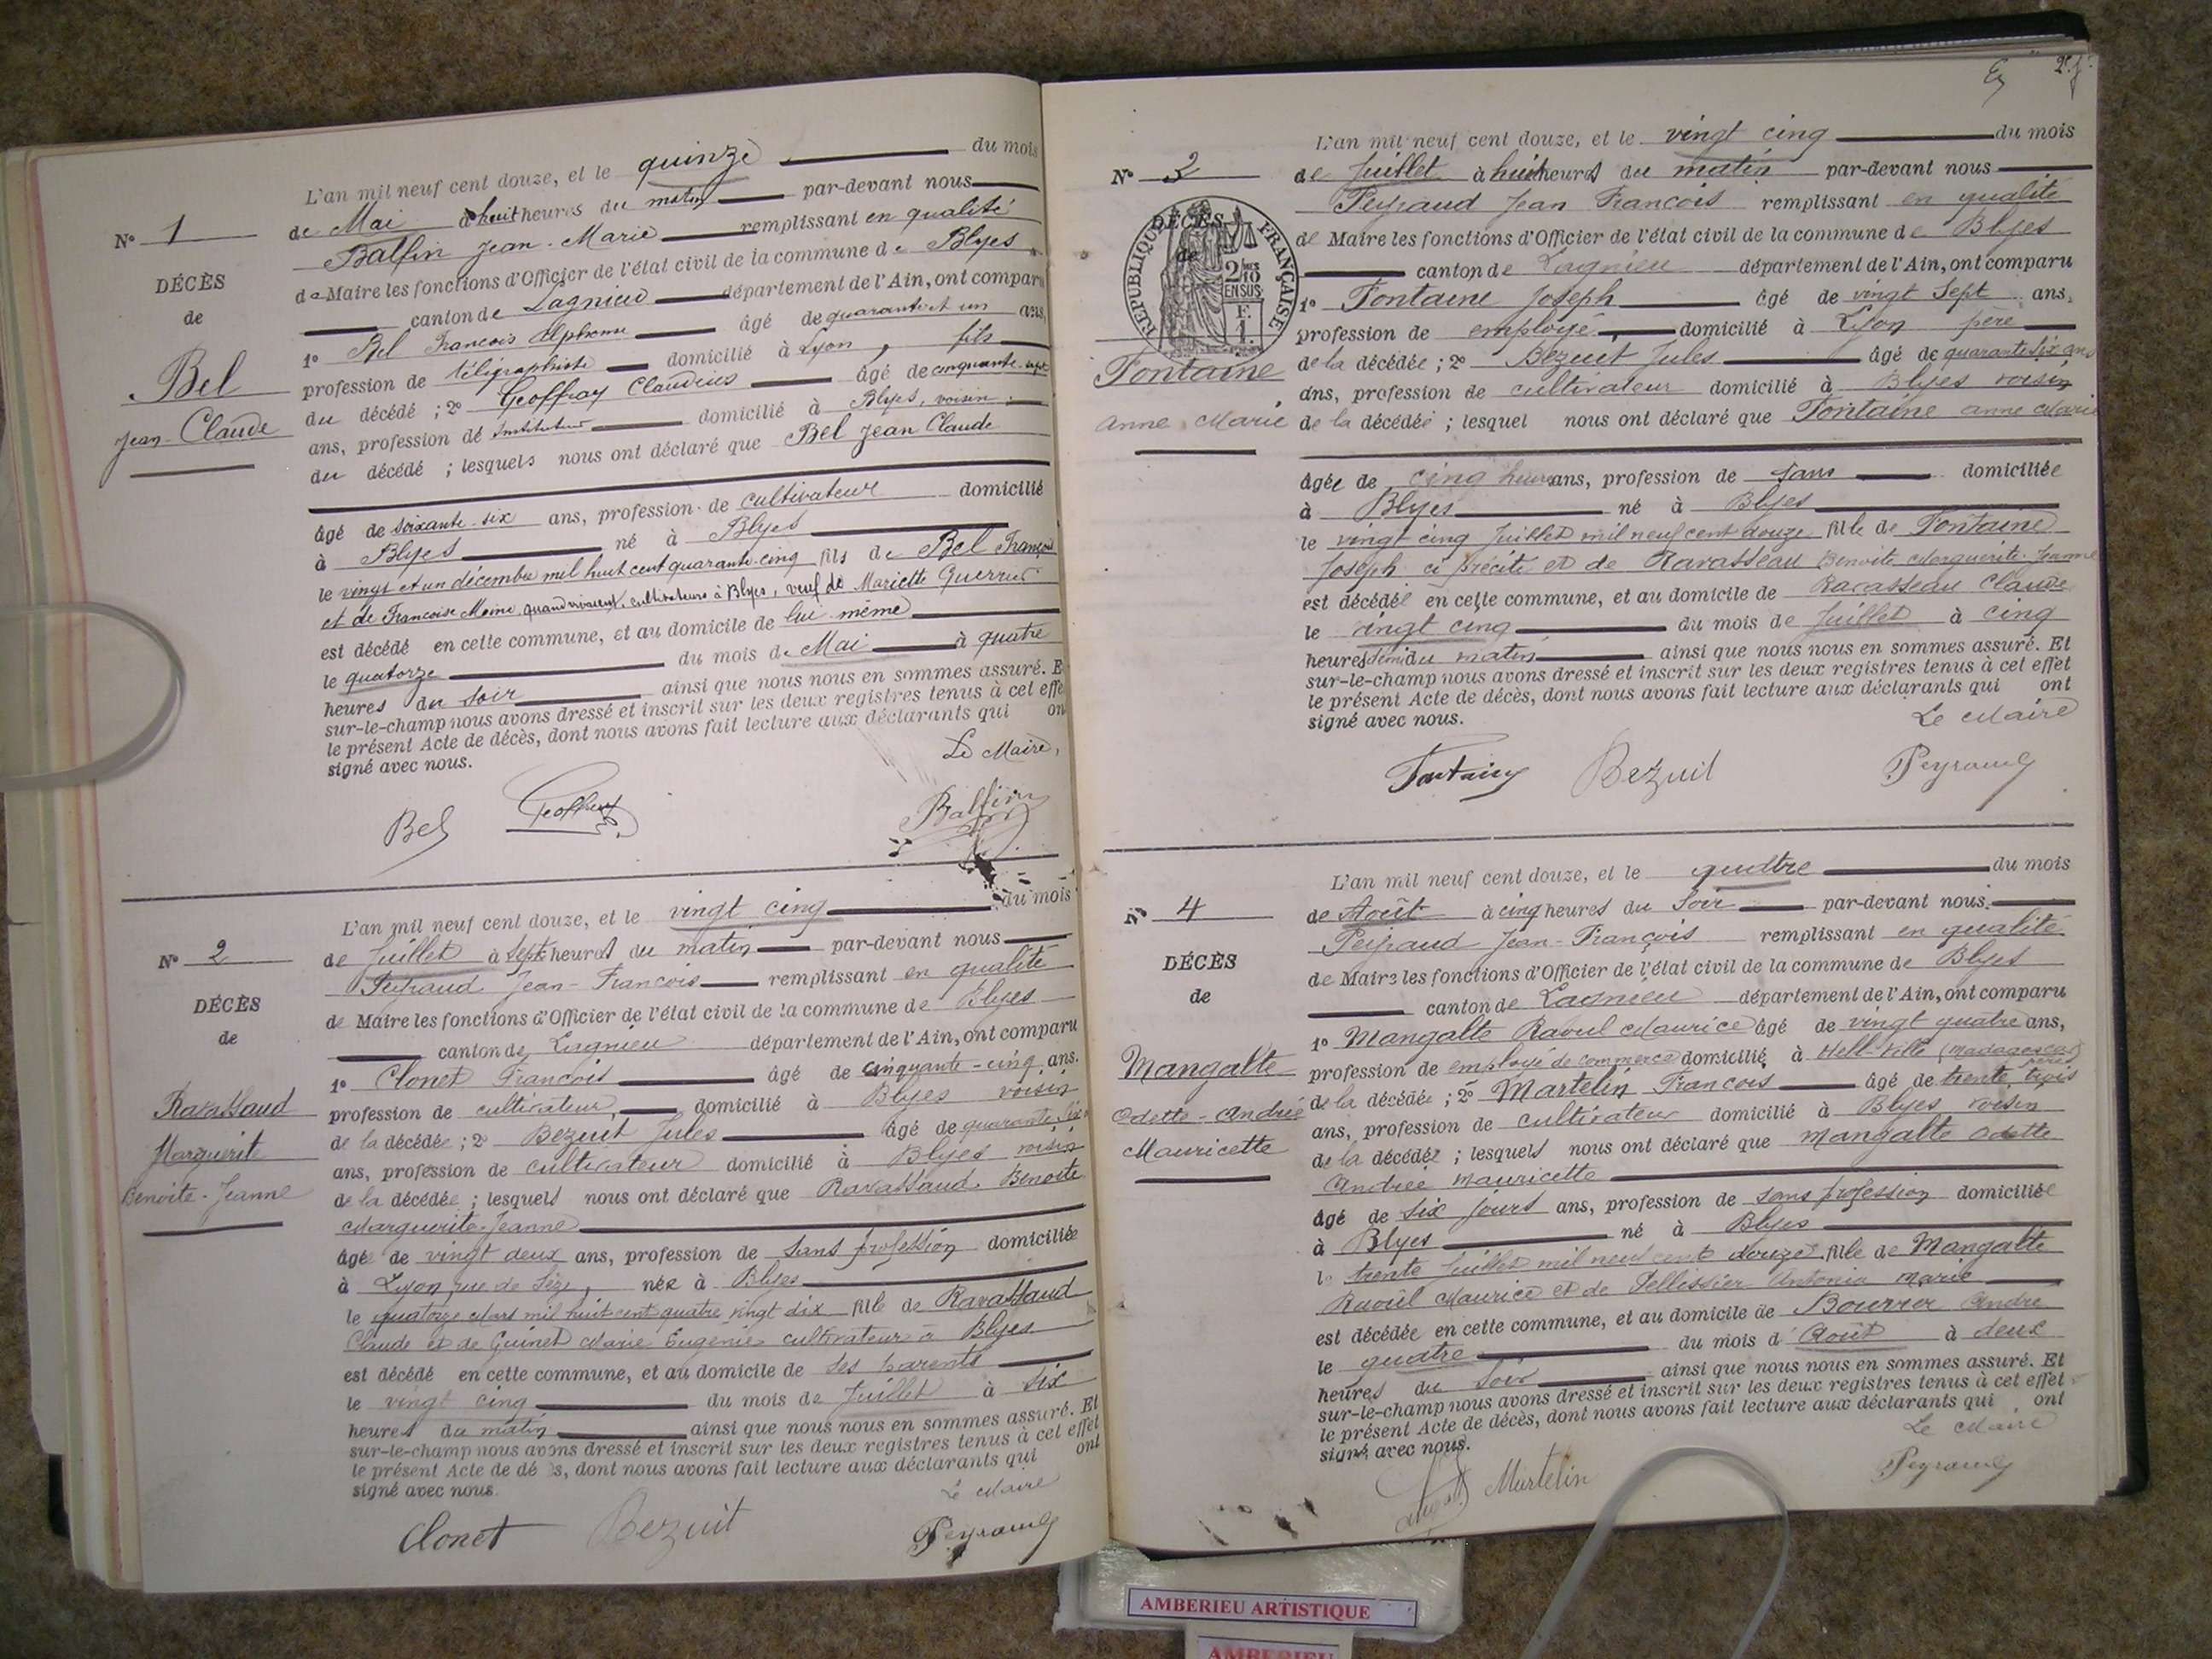 N° 1
DÉCÈS
de
Bel
Jean-Claude
L'an mil neuf cent douze, et le quinze du mois
de Mai à huit heures du matin par-devant nous
Balfin Jean-Marie remplissant en qualité
de Maire les fonctions d'Officier de l'état civil de la commune de Blyes
canton de Lagnieu département de l'Ain, ont comparu
1° Bel François Alphonse âgé de quarante et un ans,
profession de télégraphiste domicilié à Lyon, fils
du décédé ; 2° Geoffray Claudius âgé de cinquante-sept
ans, profession de Instituteur domicilié à Blyes, voisin
du décédé ; lesquels nous ont déclaré que Bel Jean Claude
âgé de soixante-six ans, profession de cultivateur domicilié
à Blyes né à Blyes
le vingt et un décembre mil huit cent quarante-cinq fils de Bel François
et de Françoise Moine, quand vivaient, cultivateurs à Blyes, veuf de Mariette Guerrier
est décédé en cette commune, et au domicile de lui-même
le quatorze du mois de Mai à quatre
heures du soir ainsi que nous nous en sommes assuré. E
sur-le-champ nous avons dressé et inscrit sur les deux registres tenus à cet effe
le présent Acte de décès, dont nous avons fait lecture aux déclarants qui on
signé avec nous.
Le Maire,
Bel Geoffray Balfin
N° 2
DÉCÈS
de
Ravassaud
Marguerite
Benoite-Jeanne
L'an mil neuf cent douze, et le vingt cinq du mois
de Juillet à sept heures du matin par-devant nous
Peyraud Jean-François remplissant en qualité
de Maire les fonctions d'Officier de l'état civil de la commune de Blyes
canton de Lagnieu département de l'Ain, ont comparu
1° Clonet François âgé de cinquante-cinq ans.
profession de cultivateur, domicilié à Blyes voisin
de la décédée ; 2° Bezuit Jules âgé de quarante six
ans, profession de cultivateur domicilié à Blyes voisin
de la décédée ; lesquels nous ont déclaré que Ravassaud Benoite
Marguerite-Jeanne
âgée de vingt deux ans, profession de sans profession domiciliée
à Lyon rue de Sèze, née à Blyes
le quatorze Mars mil huit cent quatre vingt dix fille de Ravassaud
Claude et de Guinet Marie Eugénie cultivateur à Blyes
est décédé en cette commune, et au domicile de ses parents
le vingt cinq du mois de Juillet à six
heures du matin ainsi que nous nous en sommes assuré. Et
sur-le-champ nous avons dressé et inscrit sur les deux registres tenus à cet effet
le présent Acte de dé s, dont nous avons fait lecture aux déclarants qui ont
signé avec nous.
Le Maire
Clonet Bezuit Peyraud
2e f.
N° 3
DÉCÈS
de
RÉPUBLIQUE FRANÇAISE
2/10 EN SUS
F. 1.
Fontaine
Anne Marie
L'an mil neuf cent douze, et le vingt cinq du mois
de Juillet à huit heures du matin par-devant nous
Peyraud Jean François remplissant en qualité
de Maire les fonctions d'Officier de l'état civil de la commune de Blyes
canton de Lagnieu département de l'Ain, ont comparu
1° Fontaine Joseph âgé de vingt sept ans,
profession de employé domicilié à Lyon père
de la décédée ; 2° Bezuit Jules âgé de quarante six ans
ans, profession de cultivateur domicilié à Blyes voisin
de la décédée ; lesquel nous ont déclaré que Fontaine Anne Marie
âgée de cinq heures ans, profession de sans domiciliée
à Blyes né à Blyes
le vingt cinq Juillet mil neuf cent douze fille de Fontaine
Joseph ci précité et de Ravasseau Benoite Marguerite-Jeanne
est décédée en cette commune, et au domicile de Ravasseau Claude
le vingt cinq du mois de Juillet à cinq
heures demi du matin ainsi que nous nous en sommes assuré. Et
sur-le-champ nous avons dressé et inscrit sur les deux registres tenus à cet effet
le présent Acte de décès, dont nous avons fait lecture aux déclarants qui ont
signé avec nous.
Le Maire
Fontaine Bezuit Peyraud
N° 4
DÉCÈS
de
Mangalte
Odette-Andrée
Mauricette
L'an mil neuf cent douze, et le quatre du mois
de Août à cinq heures du soir par-devant nous
Peyraud Jean-François remplissant en qualité
de Maire les fonctions d'Officier de l'état civil de la commune de Blyes
canton de Lagnieu département de l'Ain, ont comparu
1° Mangalte Raoul Maurice âgé de vingt quatre ans,
profession de employé de commerce domicilié à Hell-Ville (Madagascar) père
de la décédée ; 2° Martelin François âgé de trente trois
ans, profession de cultivateur domicilié à Blyes voisin
de la décédée ; lesquels nous ont déclaré que Mangalte Odette
Andrée Mauricette
âgé de six jours ans, profession de sans profession domiciliée
à Blyes né à Blyes
le trente Juillet mil neuf cent douze fille de Mangalte
Raoul Maurice et de Pellissier Antonia Marie
est décédée en cette commune, et au domicile de Bourrer André
le quatre du mois d'Août à deux
heures du soir ainsi que nous nous en sommes assuré. Et
sur-le-champ nous avons dressé et inscrit sur les deux registres tenus à cet effet
le présent Acte de décès, dont nous avons fait lecture aux déclarants qui ont
signé avec nous.
Le Maire
Martelin Peyraud
AMBERIEU ARTISTIQUE
AMBERIEU